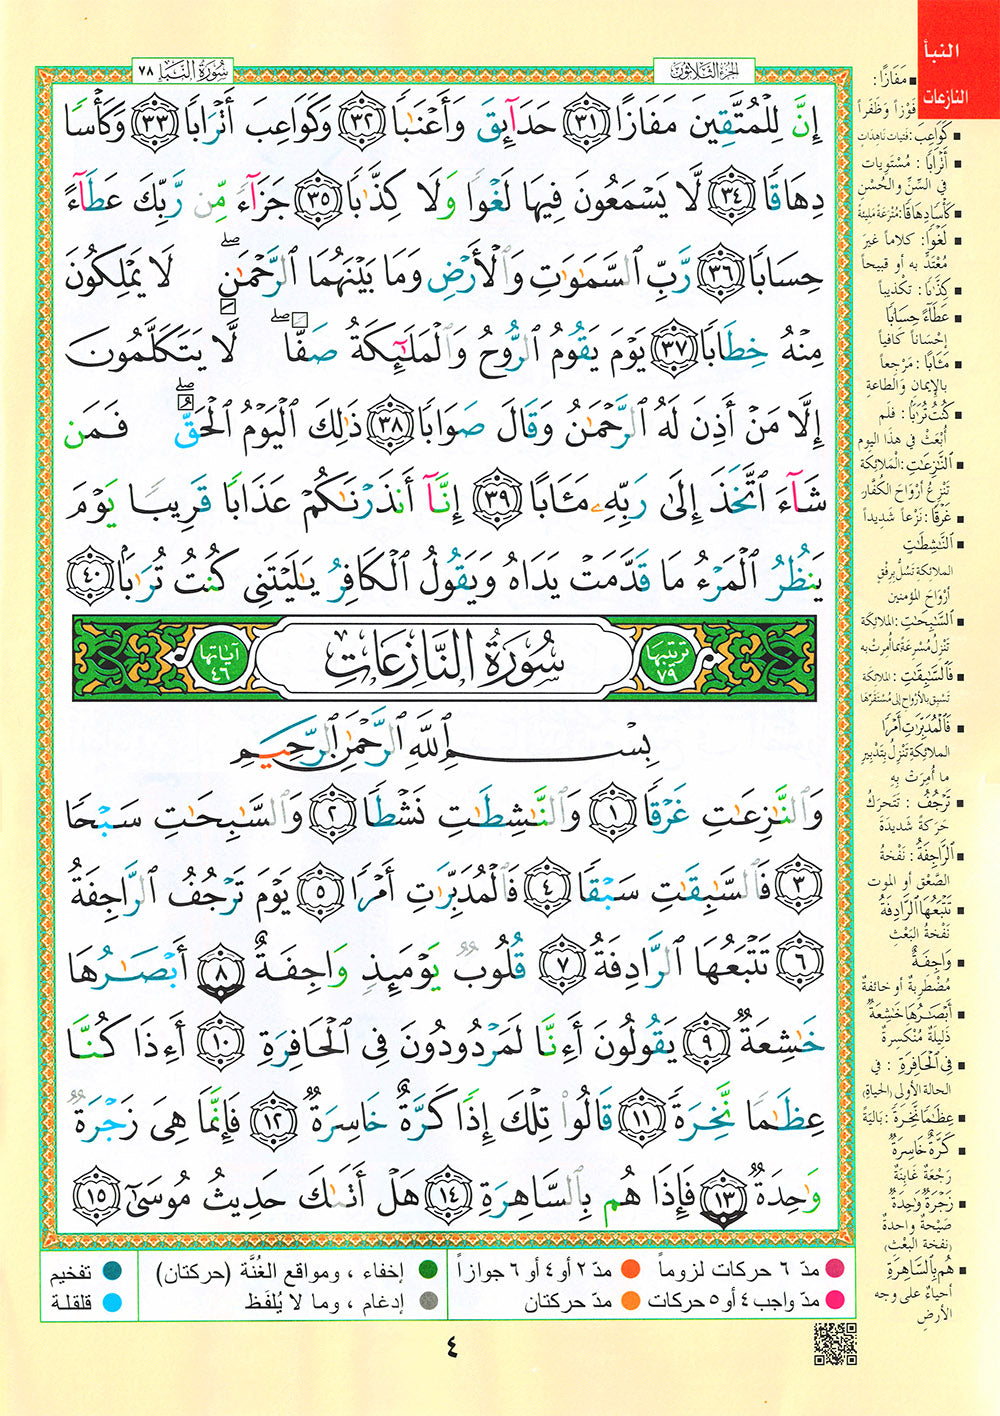 النبأ
النازعات
الجزء الثلاثون
سُورَةُ النَّبَإِ ٧٨
إِنَّ لِلْمُتَّقِينَ مَفَازًا ٣١ حَدَآئِقَ وَأَعْنَٰبًا ٣٢ وَكَوَاعِبَ أَتْرَابًا ٣٣ وَكَأْسًا
دِهَاقًا ٣٤ لَّا يَسْمَعُونَ فِيهَا لَغْوًا وَلَا كِذَّٰبًا ٣٥ جَزَآءً مِّن رَّبِّكَ عَطَآءً
حِسَابًا ٣٦ رَّبِّ ٱلسَّمَٰوَٰتِ وَٱلْأَرْضِ وَمَا بَيْنَهُمَا ٱلرَّحْمَٰنِ ۖ لَا يَمْلِكُونَ
مِنْهُ خِطَابًا ٣٧ يَوْمَ يَقُومُ ٱلرُّوحُ وَٱلْمَلَٰٓئِكَةُ صَفًّا ۖ لَّا يَتَكَلَّمُونَ
إِلَّا مَنْ أَذِنَ لَهُ ٱلرَّحْمَٰنُ وَقَالَ صَوَابًا ٣٨ ذَٰلِكَ ٱلْيَوْمُ ٱلْحَقُّ ۖ فَمَن
شَآءَ ٱتَّخَذَ إِلَىٰ رَبِّهِۦ مَـَٔابًا ٣٩ إِنَّآ أَنذَرْنَٰكُمْ عَذَابًا قَرِيبًا يَوْمَ
يَنظُرُ ٱلْمَرْءُ مَا قَدَّمَتْ يَدَاهُ وَيَقُولُ ٱلْكَافِرُ يَٰلَيْتَنِى كُنتُ تُرَٰبًۢا ٤٠
ترتيبها ٧٩ سُورَةُ النَّازِعَاتِ آياتها ٤٦
بِسْمِ ٱللَّهِ ٱلرَّحْمَٰنِ ٱلرَّحِيمِ
وَٱلنَّٰزِعَٰتِ غَرْقًا ١ وَٱلنَّٰشِطَٰتِ نَشْطًا ٢ وَٱلسَّٰبِحَٰتِ سَبْحًا
٣ فَٱلسَّٰبِقَٰتِ سَبْقًا ٤ فَٱلْمُدَبِّرَٰتِ أَمْرًا ٥ يَوْمَ تَرْجُفُ ٱلرَّاجِفَةُ
٦ تَتْبَعُهَا ٱلرَّادِفَةُ ٧ قُلُوبٌ يَوْمَئِذٍ وَاجِفَةٌ ٨ أَبْصَٰرُهَا
خَٰشِعَةٌ ٩ يَقُولُونَ أَءِنَّا لَمَرْدُودُونَ فِى ٱلْحَافِرَةِ ١٠ أَءِذَا كُنَّا
عِظَٰمًا نَّخِرَةً ١١ قَالُوا۟ تِلْكَ إِذًا كَرَّةٌ خَاسِرَةٌ ١٢ فَإِنَّمَا هِىَ زَجْرَةٌ
وَٰحِدَةٌ ١٣ فَإِذَا هُم بِٱلسَّاهِرَةِ ١٤ هَلْ أَتَىٰكَ حَدِيثُ مُوسَىٰٓ ١٥
مَفَازًا :
فَوْزاً وَظَفَراً
كَوَاعِبَ : فتيات ناهِدات
أَتْرَابًا : مُسْتَوِيات
في السِّنِّ والحُسْنِ
كَأْسًا دِهَاقًا : مُتْرَعَة مَليئَة
لَغْوًا : كلاماً غيرَ
مُعْتَدٍّ به أو قبيحاً
كِذَّٰبًا : تكْذيباً
عَطَآءً حِسَابًا
إحْساناً كافياً
مَـَٔابًا : مَرْجِعاً
بالإيمان والطاعةِ
كُنتُ تُرَٰبًا : فلَم
أُبْعَثْ في هذا اليوم
ٱلنَّٰزِعَٰتِ : الْمَلائِكَة
تَنْزِعُ أرْوَاحَ الكُفَّار
غَرْقًا : نَزْعاً شديداً
ٱلنَّٰشِطَٰتِ
الملائكة تَسُلُّ برِفْقٍ
أَرْوَاحَ المؤمنين
ٱلسَّٰبِحَٰتِ : الملائكة
تَنْزِلُ مُسْرعَةً بما أُمِرتْ به
فَٱلسَّٰبِقَٰتِ : الملائكة
تسْبِق بالأرْواح إلى مُسْتَقَرِّها
فَٱلْمُدَبِّرَٰتِ أَمْرًا
الملائكة تَنْزِلُ بتَدْبِيرِ
ما أُمِرَتْ بِهِ
تَرْجُفُ : تَتَحرَكُ
حَرَكةً شديدَةً
ٱلرَّاجِفَةُ : نَفْخَةُ
الصَّعْقِ أو الموت
تَتْبَعُهَا ٱلرَّادِفَةُ
نَفْخَةُ البَعْث
وَاجِفَةٌ
مُضْطرِبةٌ أو خائفةٌ
أَبْصَٰرُهَا خَٰشِعَةٌ
ذَلِيلَةٌ مُنْكسرةٌ
فِى ٱلْحَافِرَةِ : في
الحالة الأولى (الحياة)
عِظَٰمًا نَّخِرَةً : بَالِيَةً
كَرَّةٌ خَاسِرَةٌ
رَجْعَةٌ غَابِنَةٌ
زَجْرَةٌ وَٰحِدَةٌ
صَيْحَةٌ واحدةٌ
(نفخة البعْث)
هُم بِٱلسَّاهِرَةِ
أحياءٌ على وجه
الأرضِ
مدّ ٦ حركات لزوماً مدّ ٢ أو ٤ أو ٦ جوازاً إخفاء ، ومواقع الغُنَّة (حركتان) تفخيم
مدّ واجب ٤ أو ٥ حركات مدّ حركتان إدغام ، وما لا يُلفَظ قلقلة
٤